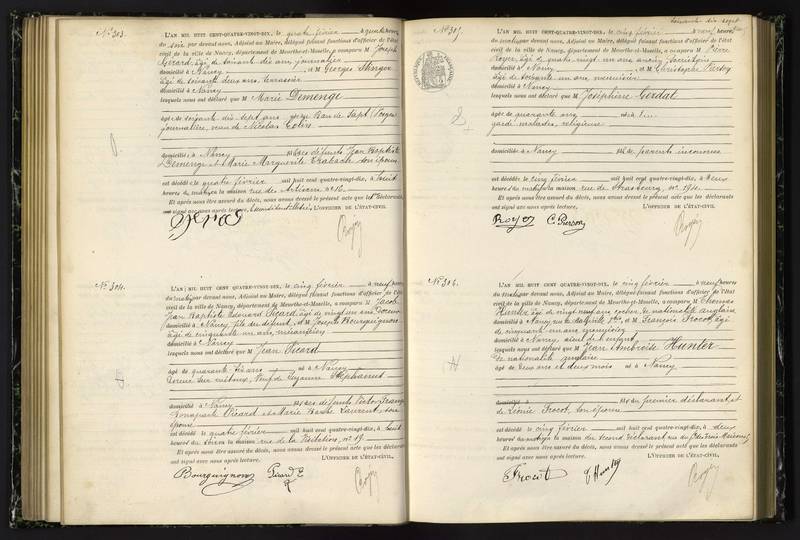 No 303.
L'AN MIL HUIT CENT QUATRE-VINGT-DIX, le quatre février à quatre heures
du soir par devant nous, Adjoint au Maire, délégué faisant fonctions d'officier de l'état
civil de la ville de Nancy, département de Meurthe-et-Moselle, a comparu M Joseph
Gérard, âgé de soixante dix ans, journalier
domicilié à Nancy et M Georges
âgé de soixante deux ans, terrassier
domicilié à Nancy
lesquels nous ont déclaré que M Marie Demenge
agée de soixante dix sept ans née Ban de Sapt (Vosges
journalière, veuve de Nicolas Colin
domiciliée à Nancy fille des défunts Jean Baptiste
Demenge et Marie Marguerite son épouse
est décédée le quatre février mil huit cent quatre-vingt-dix, à huit
heures du matin en la maison rue des Artisans no 10.
Et après nous être assuré du décès, nous avons dressé le présent acte que les déclarants
ont signé avec nous après lecture, L'OFFICIER DE L'ÉTAT-CIVIL.
No 304.
L'AN MIL HUIT CENT QUATRE-VINGT-DIX, le cinq février à neuf heures
du matin par devant nous, Adjoint au Maire, délégué faisant fonctions d'officier de l'état
civil de la ville de Nancy, département de Meurthe-et-Moselle, a comparu M Jacob
Jean Baptiste Edouard Picard âgé de vingt un ans
domicilié à Nancy, fils du défunt, et M Joseph Bourguignon
âgé de cinquante un ans, mécanicien
domicilié à Nancy
lesquels nous ont déclaré que M Jean Picard
agé de quarante ans né à Nancy
tourneur sur métaux, veuf de Suzanne
domicilié à Nancy fils des défunts Victor
Bonaparte Picard et Marie Barbe Laurent, son
épouse
est décédé le quatre février mil huit cent quatre-vingt-dix, à huit
heures du soir en la maison rue de la Visitation, no 19
Et après nous être assuré du décès, nous avons dressé le présent acte que les déclarants
ont signé avec nous après lecture. L'OFFICIER DE L'ÉTAT-CIVIL.
Bourguignon Picard E
soixante dix sept
No 305
L'AN MIL HUIT CENT QUATRE-VINGT-DIX, le cinq février à neuf heures
du matin par devant nous, Adjoint au Maire, délégué faisant fonctions d'officier de l'état
civil de la ville de Nancy, département de Meurthe-et-Moselle, a comparu M Pierre
Royer, âgé de quatre vingt un ans ancien
domicilié à Nancy et M Christophe Pierson
âgé de soixante un ans, menuisier
domicilié à Nancy
lesquels nous ont déclaré que M Joséphine Gerdat
agée de quarante ans née à
garde malades, religieuse
domiciliée à Nancy fille de parents inconnus
est décédée le cinq février mil huit cent quatre-vingt-dix, à deux
heures du matin en la maison rue de Strasbourg, no 194.
Et après nous être assuré du décès, nous avons dressé le présent acte que les déclarants
ont signé avec nous après lecture. L'OFFICIER DE L'ÉTAT-CIVIL.
Royer C. Pierson
No 306.
L'AN MIL HUIT CENT QUATRE-VINGT-DIX, le cinq février à neuf heures
du matin par devant nous, Adjoint au Maire, délégué faisant fonctions d'officier de l'état
civil de la ville de Nancy, département de Meurthe-et-Moselle, a comparu M Thomas
Hunter, âgé de vingt neuf ans de nationalité anglaise
domicilié à Nancy, et M François Frocot, âgé
de cinquante un ans
domicilié à Nancy, aïeul de l'enfant
lesquels nous ont déclaré que M Jean Ambroise Hunter
de nationalité anglaise
agé de deux ans et deux mois né à Nancy
domicilié à fils du premier déclarant et
de Léonie Frocot, son épouse
est décédé le cinq février mil huit cent quatre-vingt-dix, à deux
heures du matin en la maison du second déclarant rue du
Et après nous être assuré du décès, nous avons dressé le présent acte que les déclarants
ont signé avec nous après lecture. L'OFFICIER DE L'ÉTAT-CIVIL.
Frocot T Hunter